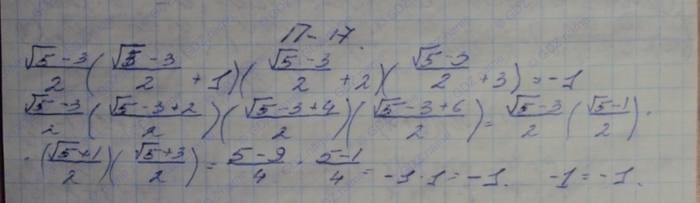 П-17.
(√5-3)/2 ((√5-3)/2 + 1)((√5-3)/2 + 2)((√5-3)/2 + 3) = -1
(√5-3)/2 ((√5-3+2)/2)((√5-3+4)/2)((√5-3+6)/2) = (√5-3)/2 ((√5-1)/2) ·
· ((√5+1)/2)((√5+3)/2) = (5-9)/4 · (5-1)/4 = -1·1 = -1. -1 = -1.